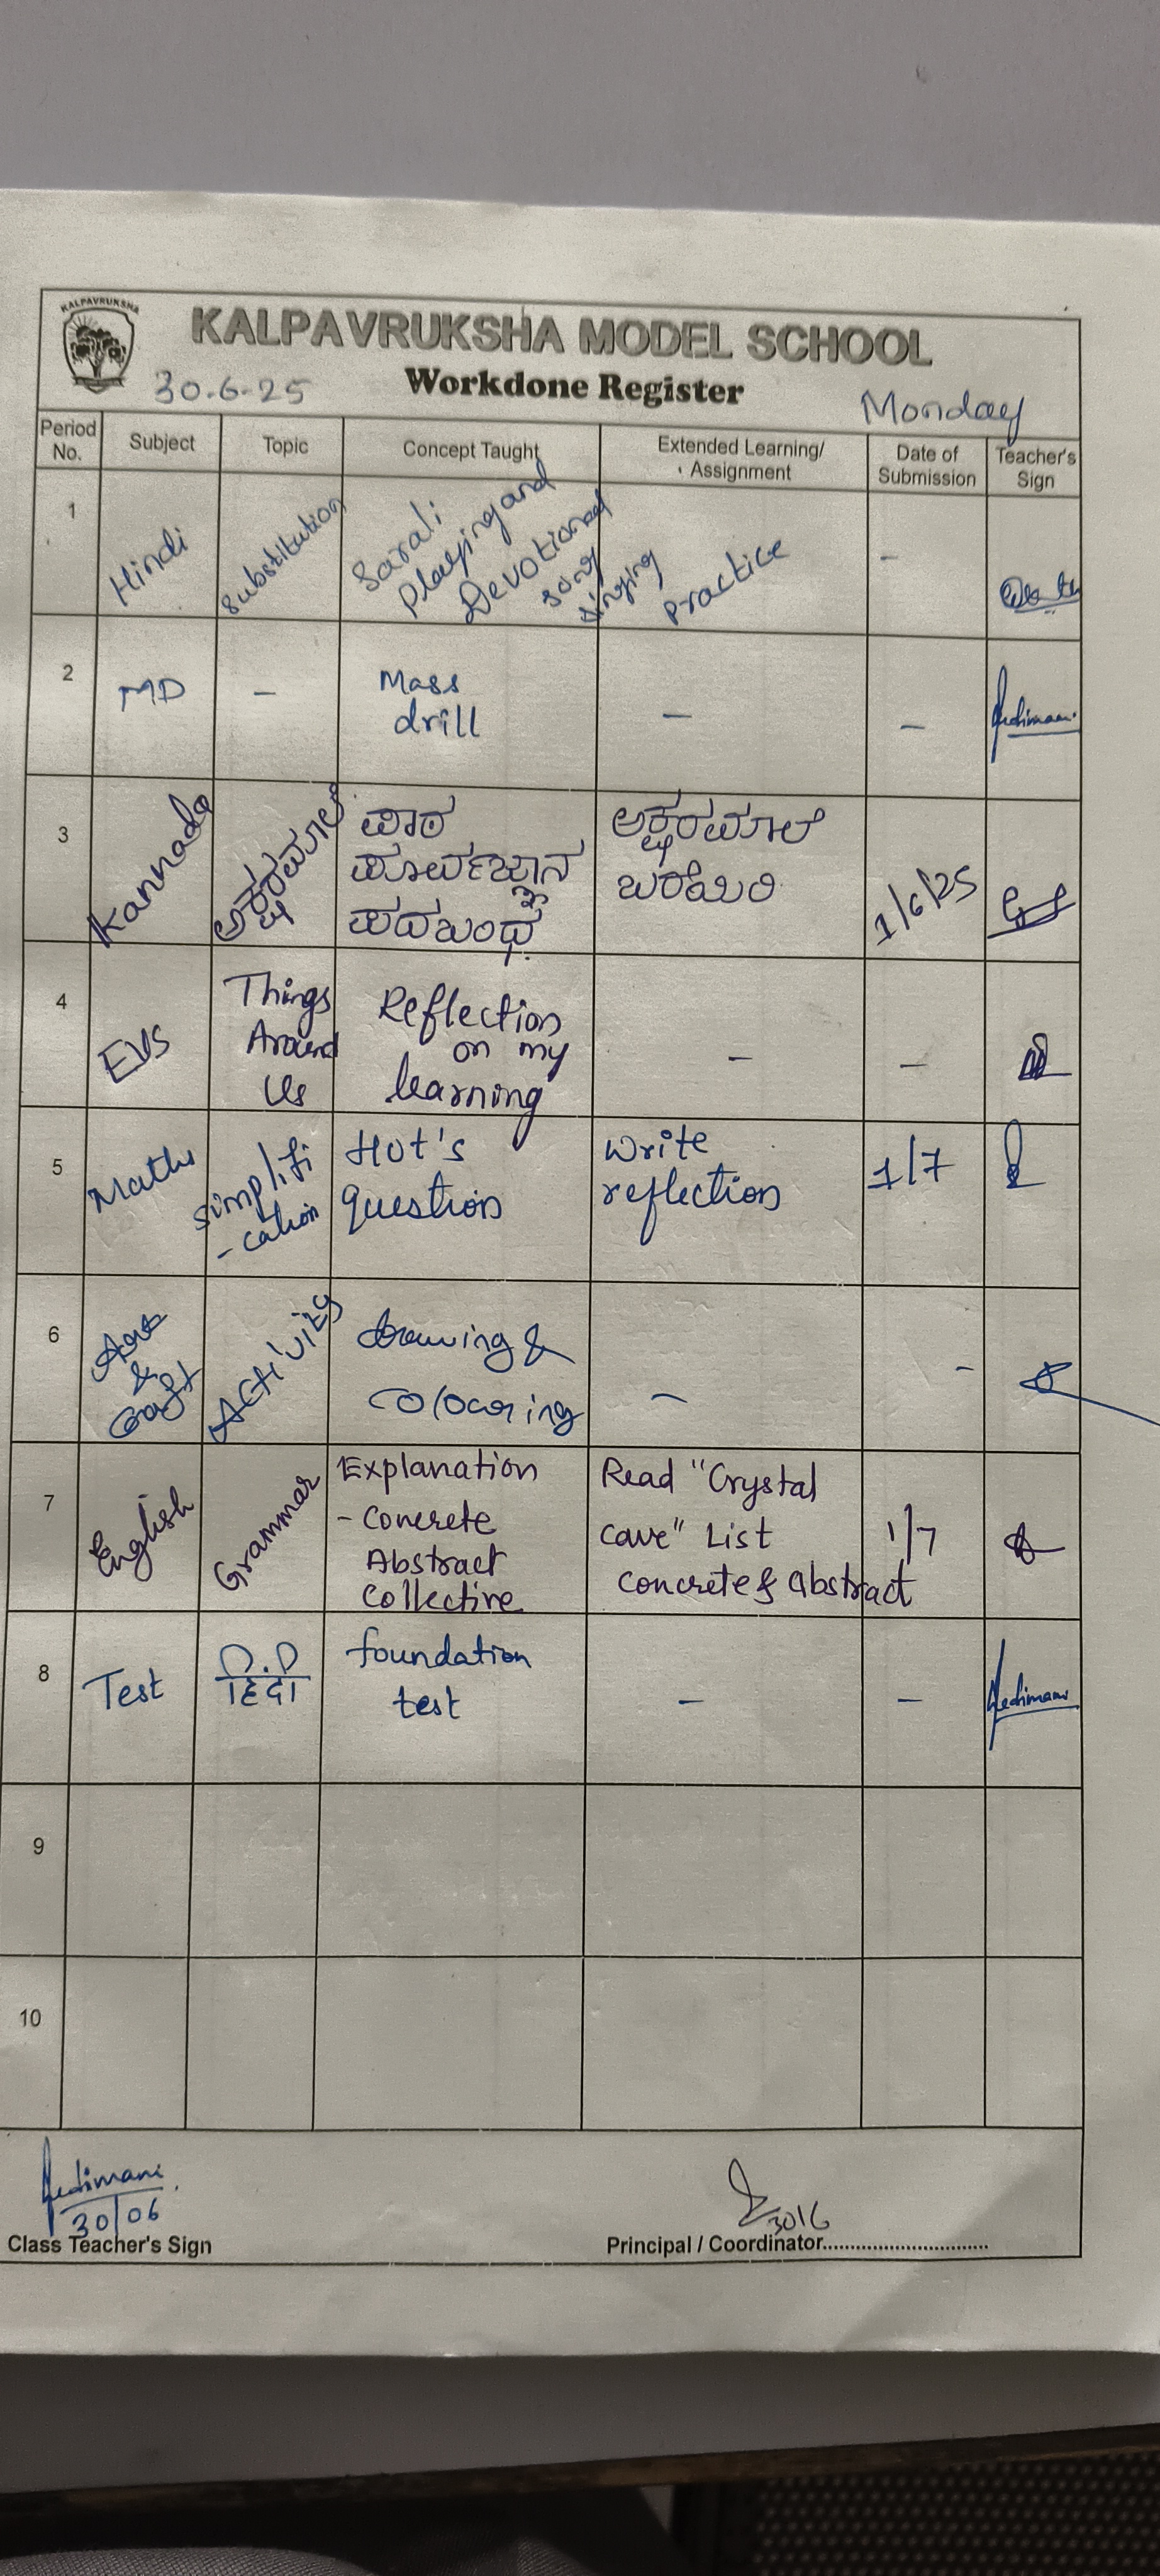 KALPAVRUKSHA
KALPAVRUKSHA MODEL SCHOOL
Workdone Register
30.6.25
Monday
Period No.
Subject
Topic
Concept Taught
Extended Learning/ Assignment
Date of Submission
Teacher's Sign
1
Hindi
Substitution
Sarali
Playing and
Devotional
song
singing
practice
-
2
MD
-
Mass
drill
-
-
3
Kannada
ಅಕ್ಷರಮಾಲೆ
ಪಾಠ
ಪೂರ್ವಜ್ಞಾನ
ಪದಬಂಧ
ಅಕ್ಷರಮಾಲೆ
ಬರೆಯಿರಿ
1/6/25
4
EVS
Things
Around
Us
Reflection
on my
learning
-
-
5
Maths
Simplifi
-cation
Hot's
question
Write
reflection
1/7
6
&
Craft
Activity
drawing &
colouring
-
-
7
English
Grammar
Explanation
- Concrete
Abstract
Collective
Read "Crystal
cave" List
concrete & abstract
1/7
8
Test
हिंदी
foundation
test
-
-
9
10
30/06
Class Teacher's Sign
30/6
Principal / Coordinator..............................